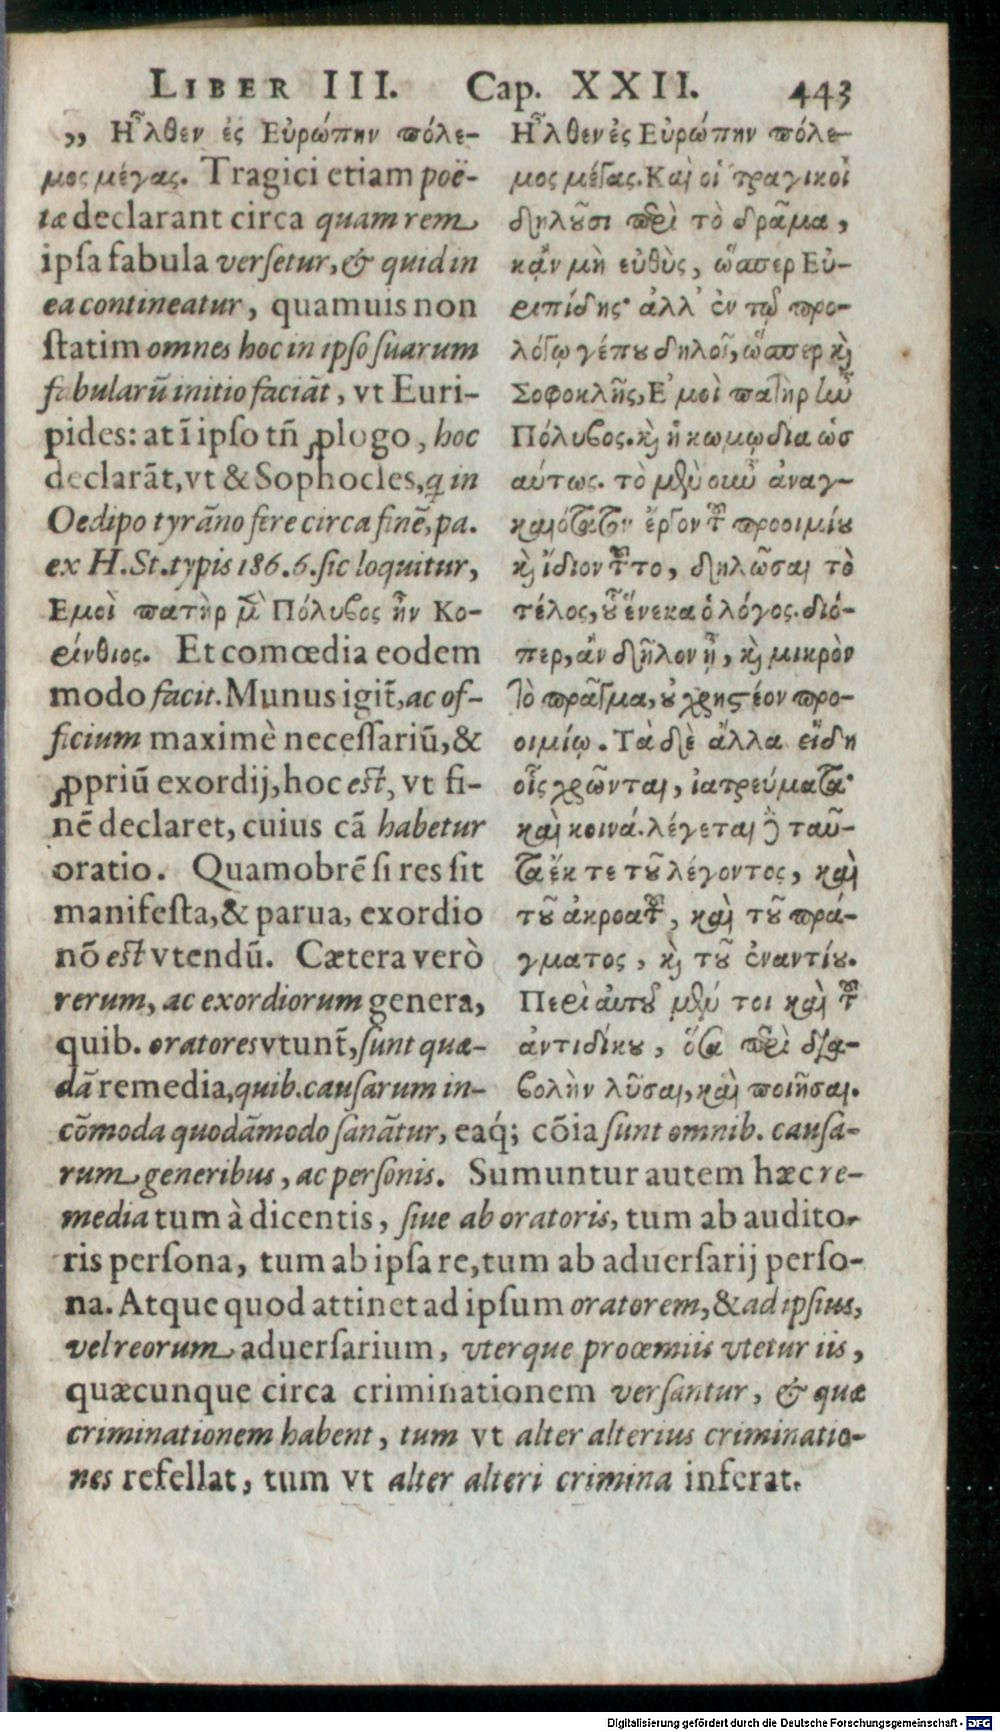 LIBER III. Cap. XXII. 443
„ Ηῆλθεν ἐς Εὐρώπην πόλε-
μος μέγας. Tragici etiam poë-
tæ declarant circa quam rem
ipsa fabula versetur, & quid in
ea contineatur, quamuis non
statim omnes hoc in ipso suarum
fabularū initio faciāt, vt Euri-
pides: at ī ipso tñ ꝓlogo, hoc
declarāt, vt & Sophocles, q in
Oedipo tyrāno fere circa finē, pa.
ex H. St. typis 186. 6. sic loquitur,
Εμοὶ πατὴρ μ̃ Πόλυβος ἦν Κο-
ρίνθιος. Et comœdia eodem
modo facit. Munus igit̃, ac of-
ficium maximè necessariū, &
ꝓpriū exordij, hoc est, vt fi-
nē declaret, cuius cā habetur
oratio. Quamobrē si res sit
manifesta, & parua, exordio
nō est vtendū. Cætera verò
rerum, ac exordiorum genera,
quib. oratores vtunt̃, sunt quæ-
dā remedia, quib. causarum in-
cōmoda quodāmodo sanātur, eaq́; cōia sunt omnib. causa-
rum generibus, ac personis. Sumuntur autem hæc re-
media tum à dicentis, siue ab oratoris, tum ab audito-
ris persona, tum ab ipsa re, tum ab aduersarij perso-
na. Atque quod attinet ad ipsum oratorem, & ad ipsius,
vel reorum aduersarium, vterque proœmiis vtetur iis,
quæcunque circa criminationem versantur, & quæ
criminationem habent, tum vt alter alterius criminatio-
nes refellat, tum vt alter alteri crimina inferat.
Ηῆλθεν ἐς Εὐρώπην πόλε-
μος μέγας. Καὶ οἱ τραγικοὶ
δηλοῦσι περὶ τὸ δρᾶμα,
κἂν μὴ εὐθὺς, ὥσπερ Εὐ-
ριπίδης· ἀλλ' ἐν τῷ προ-
λόγῳ γέπου δηλοῖ, ὥσπερ καὶ
Σοφοκλῆς, Ε'μοὶ πατὴρ ἦν
Πόλυβος. καὶ ἡ κωμῳδία ὡσ
αύτως. τὸ μὲν οὖν ἀναγ-
καιότατον ἔργον τοῦ προοιμίου
καὶ ἴδιον τοῦτο, δηλῶσαι τὸ
τέλος, οὗ ἕνεκα ὁ λόγος. διό-
περ, ἂν δῆλον ᾖ, καὶ μικρὸν
τὸ πρᾶγμα, οὐ χρηστέον προ-
οιμίῳ. Τὰ δὲ ἄλλα εἴδη
οἷς χρῶνται, ἰατρεύματα·
καὶ κοινά. λέγεται δὲ ταῦ-
τα ἔκ τε τοῦ λέγοντος, καὶ
τοῦ ἀκροατοῦ, καὶ τοῦ πρά-
γματος, καὶ τοῦ ἐναντίου.
Περὶ αὑτοῦ μέν τοι καὶ τοῦ
ἀντιδίκου, ὅσα περὶ δια-
βολὴν λῦσαι, καὶ ποιῆσαι.
Digitalisierung gefördert durch die Deutsche Forschungsgemeinschaft - DFG